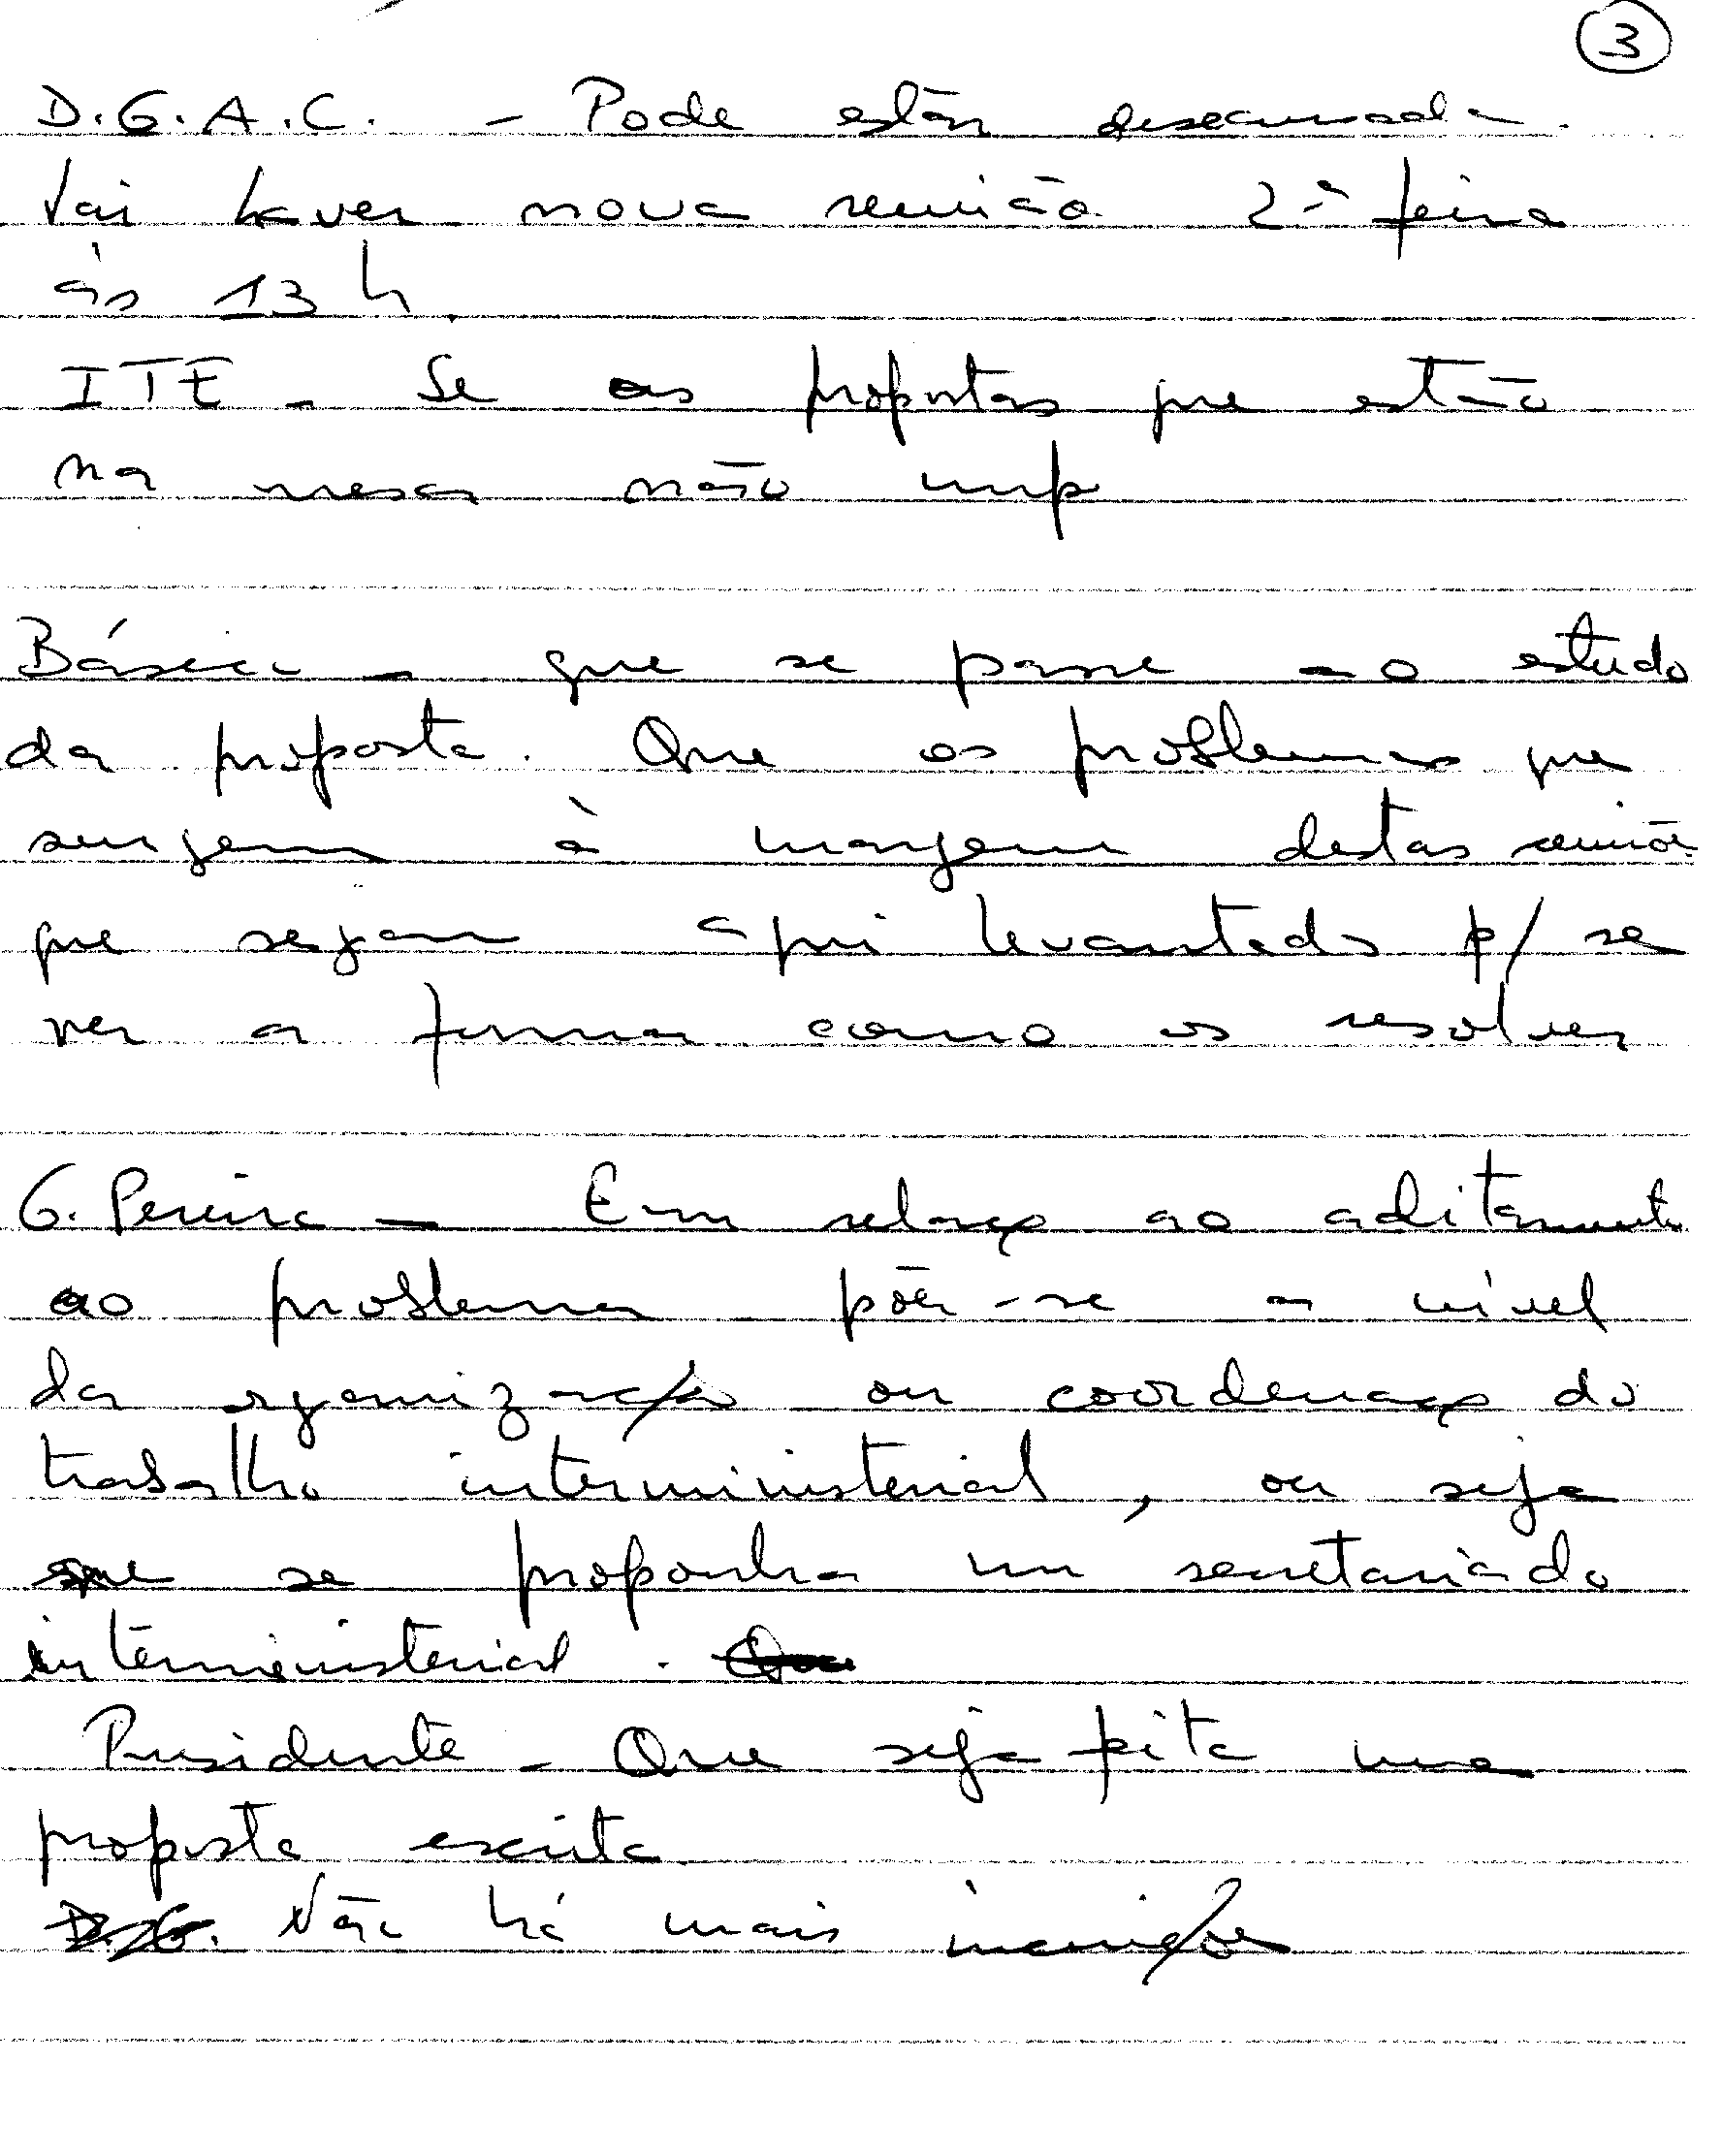 3
D.G.A.C. - Pode estar descansada.
Vai haver nova reunião 2ª feira
às 13 h.
ITE - Se as propostas que estão
na mesa não
Básica - que se passe ao estudo
da proposta. Que os problemas que
surgem à margem destas reuniões
que sejam aqui levantados p/ se
ver a forma como os resolver
G. Pereira - Em relação ao aditamento
ao problema pôr-se a nível
da organização ou coordenação do
trabalho interministerial, ou seja
que se proponha um secretariado
interministerial.
Presidente - Que seja feita uma
proposta escrita
Não há mais inscrições